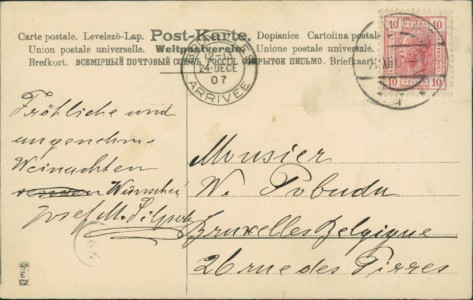 Carte postale. Levelezö-Lap. Post-Karte. Dopisnice Cartolina postale
Union postale universelle. Weltpostverein. Unione postale universale.
Brefkort. ВСЕМІРНЫЙ ПОЧТОВЫЙ СОЮЗЪ. РОССІЯ. ОТКРЫТОЕ ПИСЬМО. Briefkaart
10 10
10 10
12-13
24 DECE
07
ARRIVEE
Fröhliche und
angenehme
Weinachten
Wünschen
Josef M.
Monsier
W. Pobuda
Bruxelles Belgique
26 rue des Pirres